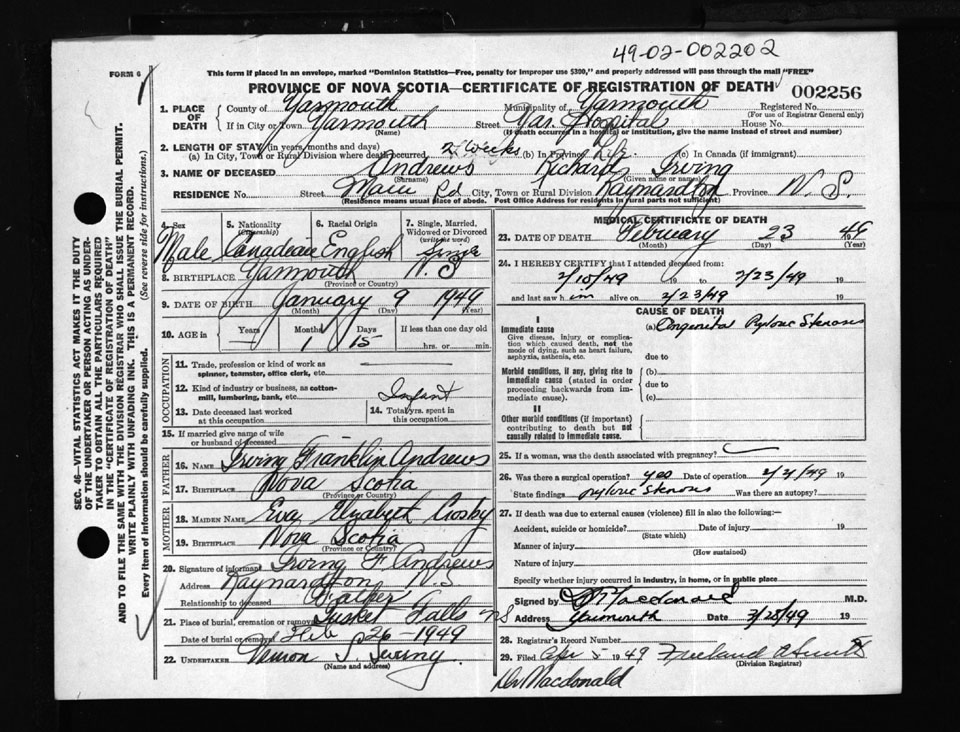 49-02-002202
FORM 6
This form if placed in an envelope, marked "Dominion Statistics—Free, penalty for improper use $300," and properly addressed will pass through the mail "FREE"
PROVINCE OF NOVA SCOTIA—CERTIFICATE OF REGISTRATION OF DEATH
002256
1. PLACE OF DEATH
County of Yarmouth Municipality of Yarmouth Registered No.
(For use of Registrar General only)
If in City or Town Yarmouth Street Yar. Hospital House No.
(Name) (If death occurred in a hospital or institution, give the name instead of street and number)
2. LENGTH OF STAY (in years, months and days)
(a) In City, Town or Rural Division where death occurred 2 Weeks (b) In Province Life (c) In Canada (if immigrant)
3. NAME OF DECEASED Andrews Richard Irving
(Surname) (Given name or names)
RESIDENCE No. Street Main Rd City, Town or Rural Division Raynardton Province N.S.
(Residence means usual place of abode. Post Office Address for residents in rural parts not sufficient)
4. Sex Male
5. Nationality (Citizenship) Canadian
6. Racial Origin English
7. Single, Married, Widowed or Divorced (write the word) Single
8. BIRTHPLACE Yarmouth N.S
(Province or Country)
9. DATE OF BIRTH January 9 1949
(Month) (Day) (Year)
10. AGE in Years — Months 1 Days 15 If less than one day old
hrs. or min.
OCCUPATION
11. Trade, profession or kind of work as spinner, teamster, office clerk, etc. —
12. Kind of industry or business, as cotton-mill, lumbering, bank, etc. Infant
13. Date deceased last worked at this occupation
14. Total yrs. spent in this occupation
15. If married give name of wife or husband of deceased
FATHER
16. NAME Irving Franklin Andrews
17. BIRTHPLACE Nova Scotia
(Province or Country)
MOTHER
18. MAIDEN NAME Eva Elizabeth Crosby
19. BIRTHPLACE Nova Scotia
(Province or Country)
20. Signature of informant Irving F. Andrews
Address Raynardton N.S
Relationship to deceased Father
21. Place of burial, cremation or removal Tusket Falls NS
Date of burial or removal Feb 26-1949
22. UNDERTAKER Vernon S. Sweeny
(Name and address)
MEDICAL CERTIFICATE OF DEATH
23. DATE OF DEATH February 23 1949
(Month) (Day) (Year)
24. I HEREBY CERTIFY that I attended deceased from:
2/15/49 19 to 2/23/49 19
and last saw him alive on 2/23/49 19
CAUSE OF DEATH
I
Immediate cause
Give disease, injury or complication which caused death, not the mode of dying, such as heart failure, asphyxia, asthenia, etc.
(a) Congenital Pyloric Stenosis
due to
Morbid conditions, if any, giving rise to immediate cause (stated in order proceeding backwards from immediate cause)
(b)
due to
(c)
II
Other morbid conditions (if important) contributing to death but not causally related to immediate cause.
25. If a woman, was the death associated with pregnancy?
26. Was there a surgical operation? yes Date of operation 19
State findings pyloric Stenosis Was there an autopsy?
27. If death was due to external causes (violence) fill in also the following:
Accident, suicide or homicide? Date of injury 19
(State which)
Manner of injury
(How sustained)
Nature of injury
Specify whether injury occurred in industry, in home, or in public place
Signed by Macdonald M.D.
Address Yarmouth Date 19
28. Registrar's Record Number
29. Filed Apr 5 1949 Freeland
(Division Registrar)
Dr Macdonald
SEC. 46—VITAL STATISTICS ACT MAKES IT THE DUTY
OF THE UNDERTAKER OR PERSON ACTING AS UNDER-
TAKER TO OBTAIN ALL THE PARTICULARS REQUIRED
IN THE "CERTIFICATE OF REGISTRATION OF DEATH"
AND TO FILE THE SAME WITH THE DIVISION REGISTRAR WHO SHALL ISSUE THE BURIAL PERMIT.
WRITE PLAINLY WITH UNFADING INK. THIS IS A PERMANENT RECORD.
Every item of information should be carefully supplied. (See reverse side for instructions.)